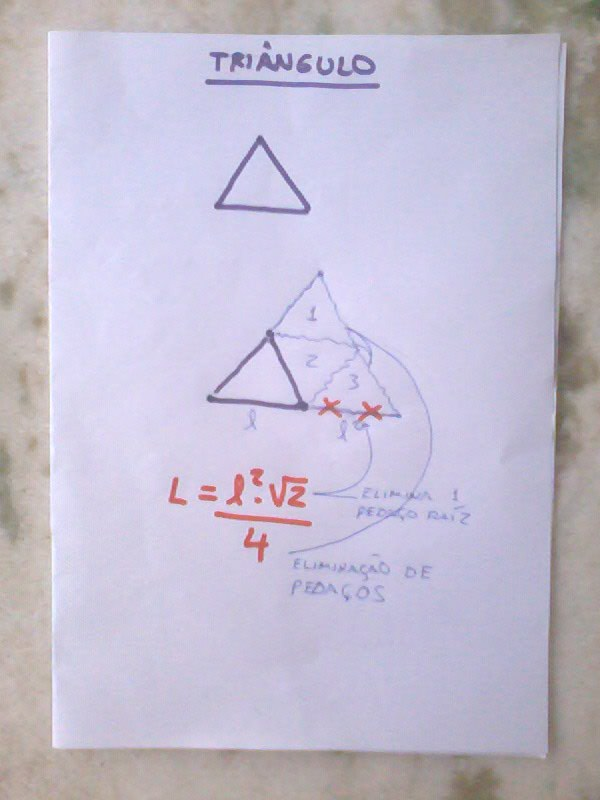 TRIÂNGULO
1
2
3
l l²
L = l².√2
4
ELIMINA 1
PEDAÇO RAÍZ
ELIMINAÇÃO DE
PEDAÇOS